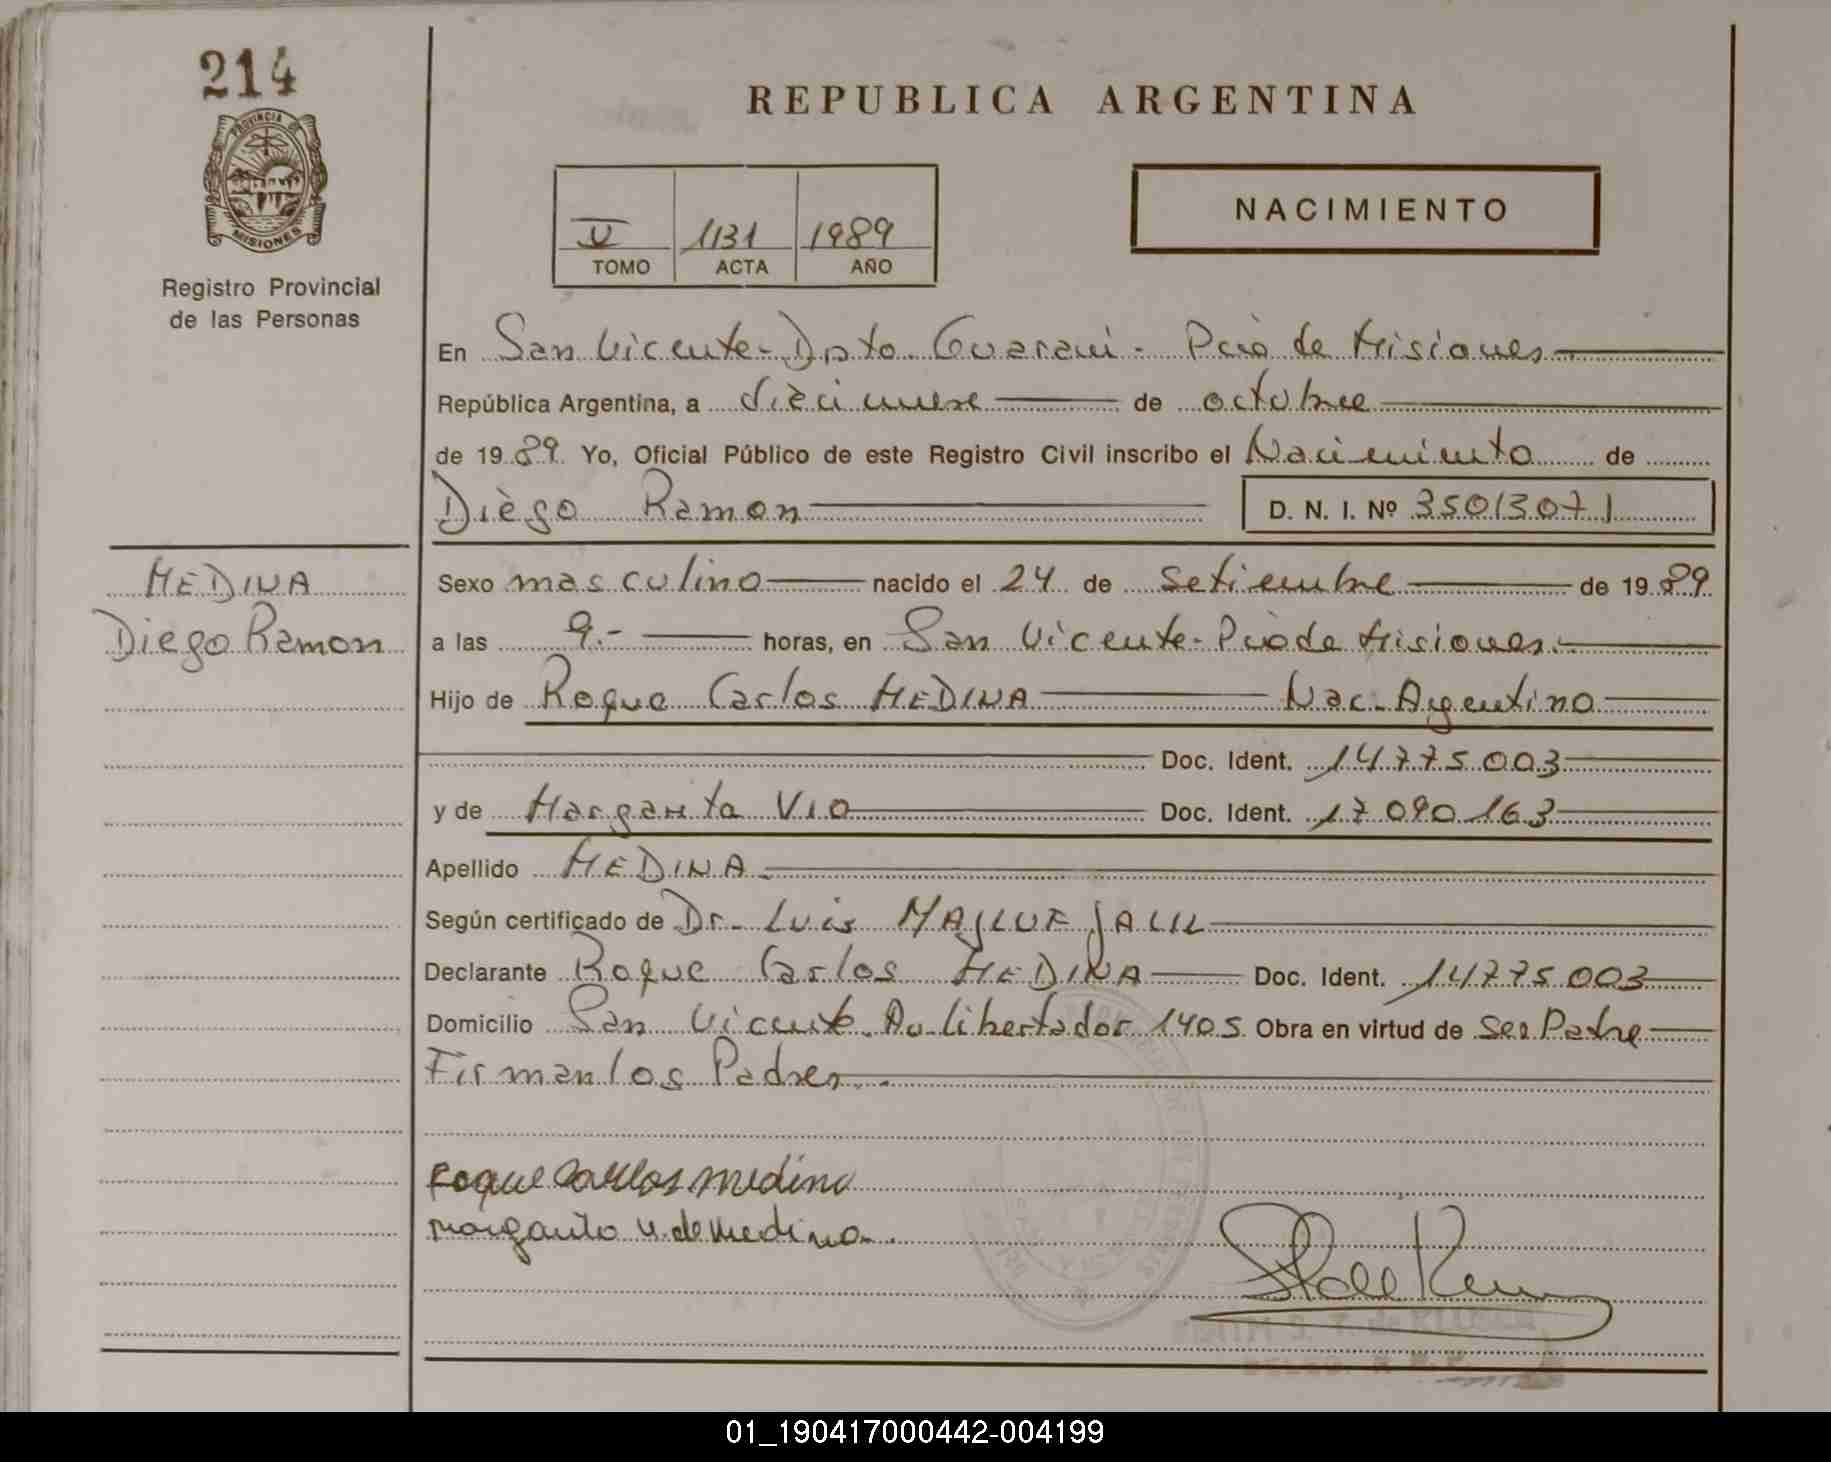 214
PROVINCIA DE
MISIONES
Registro Provincial
de las Personas
REPUBLICA ARGENTINA
V 1131 1989
TOMO ACTA AÑO
NACIMIENTO
En San Vicente - Dpto Guaraní - Pcia de Misiones
República Argentina, a diecinueve de octubre
de 1989. Yo, Oficial Público de este Registro Civil inscribo el Nacimiento de
Diego Ramon D. N. I. Nº 35013071
MEDINA
Diego Ramon
Sexo masculino nacido el 24 de setiembre de 1989
a las 9.- horas, en San Vicente - Pcia de Misiones.-
Hijo de Roque Carlos MEDINA Nac. Argentino
Doc. Ident. 14775003
y de Margarita VIO Doc. Ident. 17090163
Apellido MEDINA.
Según certificado de Dr. Luis MAJLUF JALIL
Declarante Roque Carlos MEDINA Doc. Ident. 14775003
Domicilio San Vicente. Av. Libertador 1405 Obra en virtud de Ser Padre
Firman los Padres.
Roque Carlos Medina
Margarita V. de Medina.
01_190417000442-004199